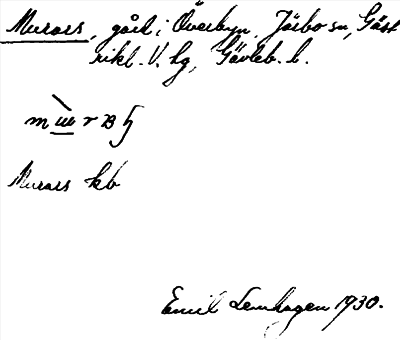 Murars, gård i Överbyn, Järbo sn, Gäst
rikl. V. hg, Gävleb. l.
Murars kb
Emil Lenhagen 1930.